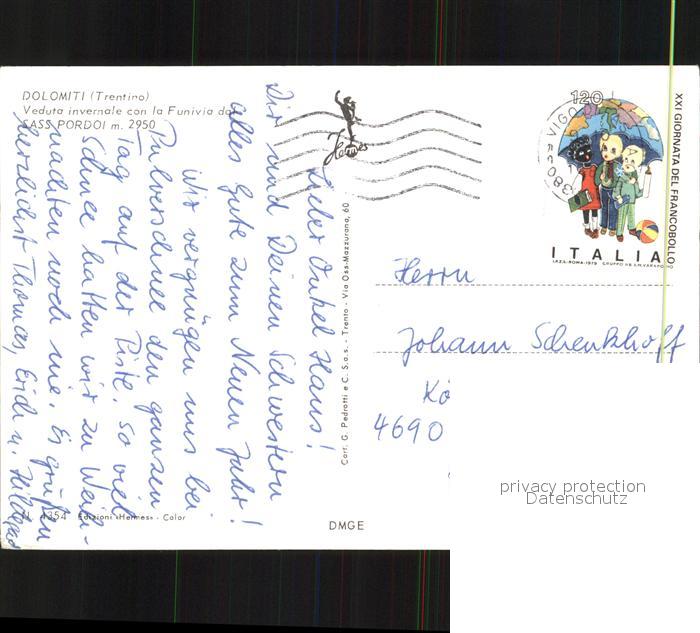 DOLOMITI (Trentino)
Veduta invernale con la Funivia da
SASS PORDOI m. 2950
Lieber Onkel Hans!
Dir und Deinen Schwestern
alles Gute zum Neuen Jahr!
Wir vergnügen uns bei
Pulverschnee den ganzen
Tag auf der Piste. So viel
Schnee hatten wir zu Weih-
nachten noch nie. Es grüßen
herzlichst Thomas, Erich u. Hildegard
N. 4354 Edizioni «Hermes» - Color
Cart. G. Pedrotti e C. S.a.s. - Trento - Via Oss-Mazzurana, 60
Hermes
DMGE
VIGO
380
120
ITALIA
I.P.Z.S.-ROMA-1979
XXI GIORNATA DEL FRANCOBOLLO
Herrn
Johann Schenkhoff
Kö
4690
privacy protection
Datenschutz